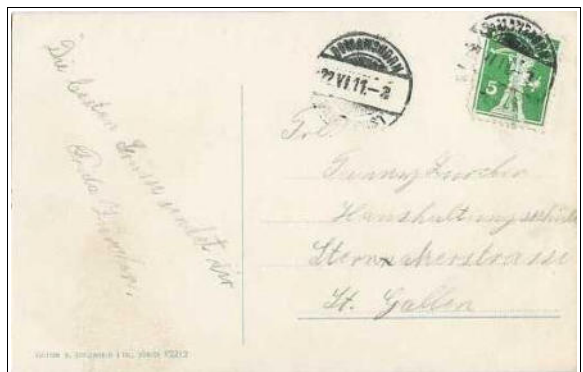 Die besten Grüsse sendet dir
Frida Zürcher.
ROMANSHORN
22 VI 11.–
5
Frl.
Fanny Zürcher
Haushaltungsschule
Sternackerstrasse
St. Gallen